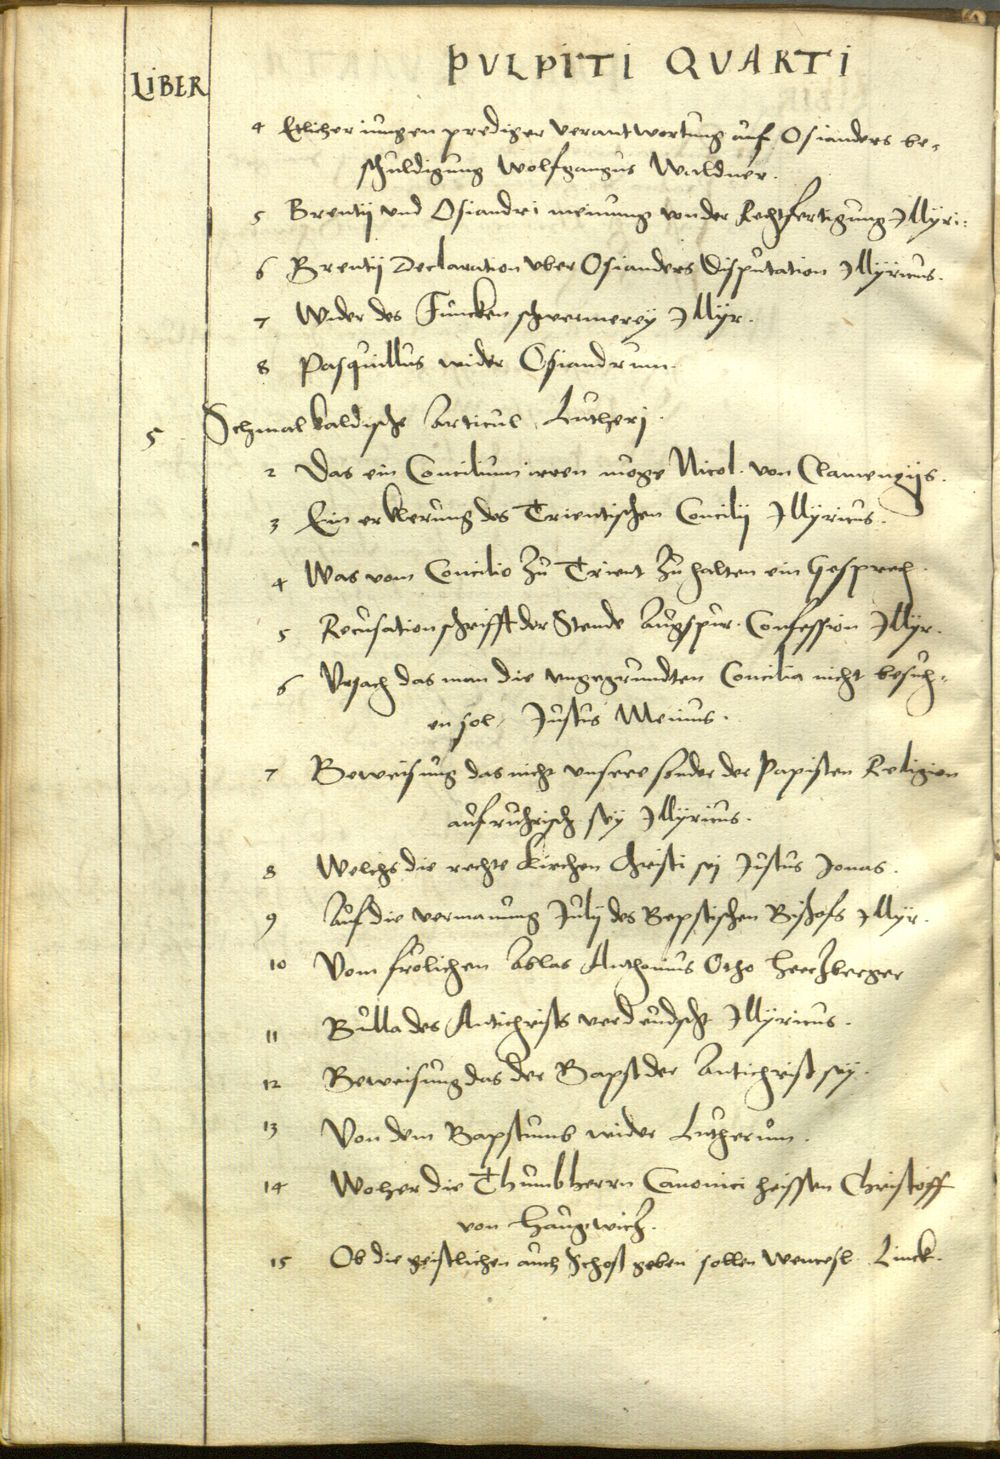 PULPITI QUARTI
LIBER
4 Etlicher jungen prediger verantwortung auf Osianders be-
schuldigung Wolfgangus Waldner.
5 Brentij und Osiandri meinung von der Rechtfertigung Illyri:
6 Brentij Declaration uber Osianders Disputation Illyricus.
7 Wider des Funcken schwermerey Illyr.
8 Pasquillus wider Osiandrum.
5 Schmalkaldische Articul Lutherj.
2 Das ein Concilium irren moge Nicol. von Clamengijs.
3 Ein erklerung des Trientischen Concilij Illyricus.
4 Was vom Concilio zu Trient zu halten ein Gesprech.
5 Recusation schrifft der Stende Augspur. Confession Illyr.
6 Ursach das man die ungegrundten Concilia nicht besuch-
en sol, Justus Menius.
7 Beweisung das nicht unsere sonder der Papisten Religion
aufruhrisch sey Illyricus.
8 Welchs die rechte Kirchen Christi sej Justus Jonas.
9 Auf die vermanung Julij des Bepstischen Bischofs Illyr.
10 Vom frolichen Ablas Anthonius Otho Hertzberger
11 Bulla des Antichrists verdeudscht Illyricus.
12 Beweisung das der Bapst der Antichrist sey.
13 Von dem Bapstumb wider Lutherum.
14 Woher die Thumbherrn Canonici heissen Christoff
von Haugwitz.
15 Ob die geistlichen auch Schoß geben sollen Wencesl. Linck.